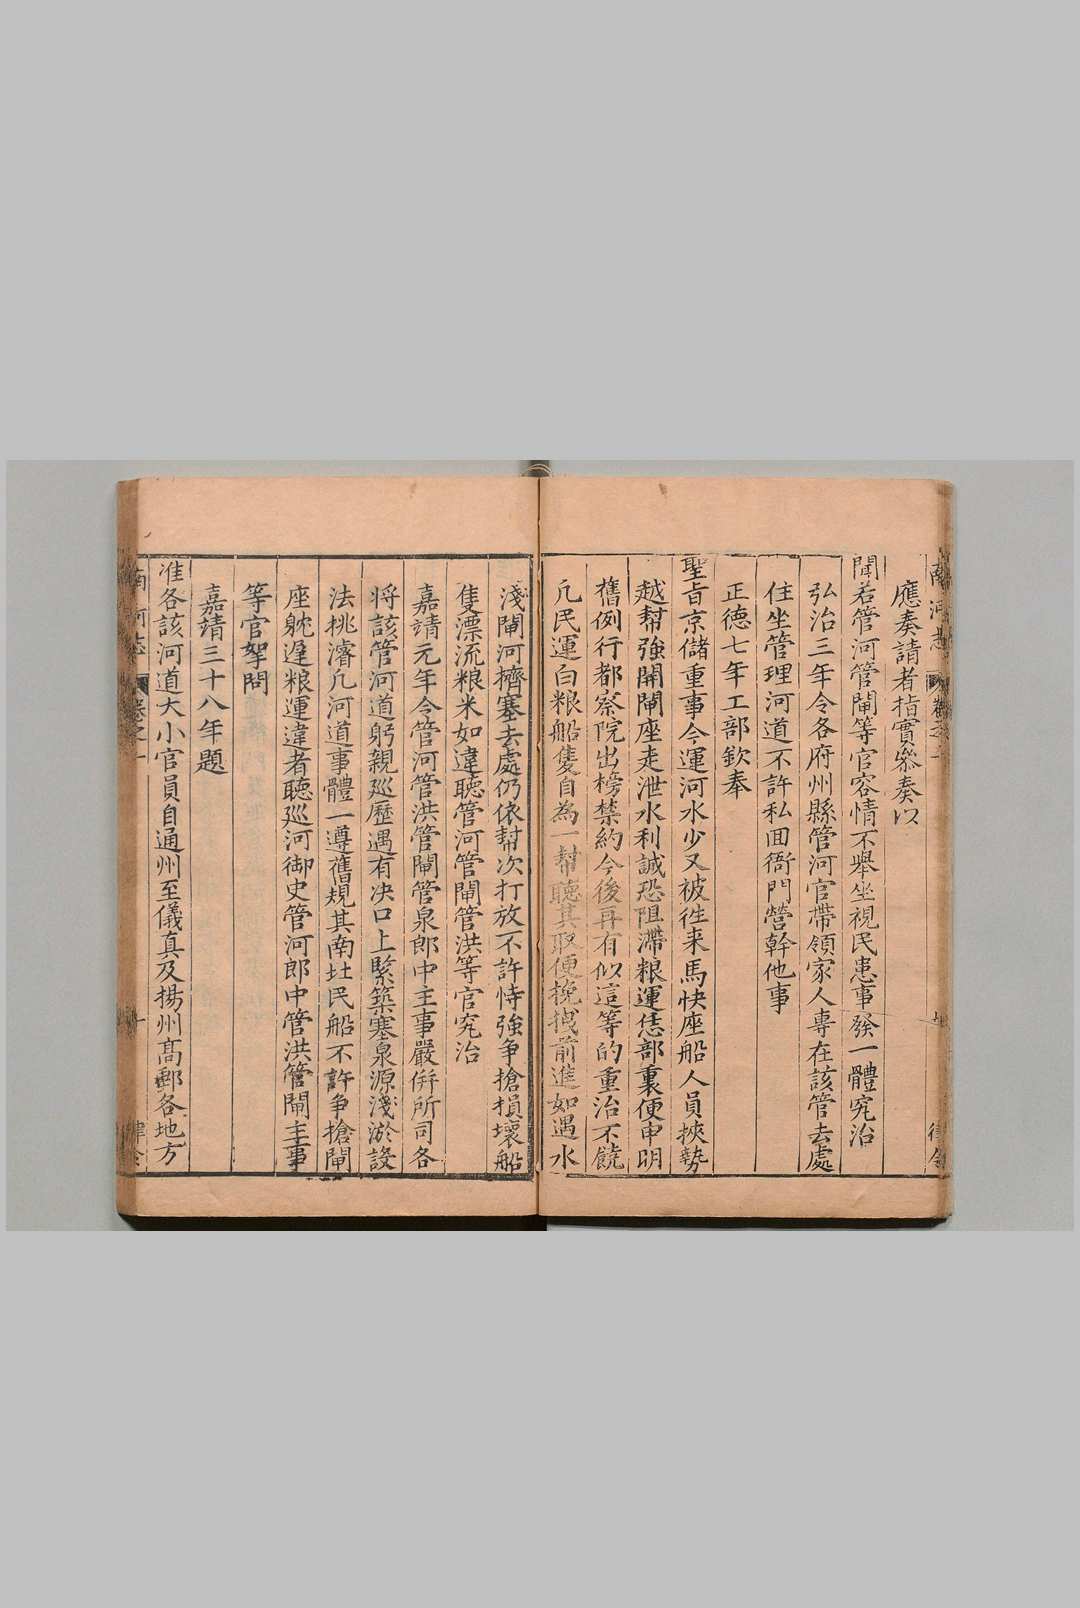 南河志 卷之一 律令
應奏請者指實叅奏以
聞若管河管閘等官容情不舉坐視民患事發一體究治
弘治三年令各府州縣管河官帶領家人專在該管去處
住坐管理河道不許私囬衙門營幹他事
正德七年工部欽奉
聖旨京儲重事今運河水少又被徃来馬快座船人員挾勢
越幫強開閘座走泄水利誠恐阻滯粮運恁部裏便申明
舊例行都察院出榜禁約今後再有似這等的重治不饒
凡民運白粮船隻自為一幫聽其取便挽拽前進如遇水
淺閘河擠塞去處仍依幫次打放不許恃強争搶損壞船
隻漂流粮米如違聽管河管閘管洪等官究治
嘉靖元年令管河管洪管閘管泉郎中主事嚴併所司各
将該管河道躬親廵歷遇有决口上緊築塞泉源淺淤設
法挑濬凡河道事體一遵舊規其南北民船不許争搶閘
座躭遲粮運違者聽廵河御史管河郎中管洪管閘主事
等官拏問
嘉靖三十八年題
准各該河道大小官員自通州至儀真及揚州高郵各地方
南河志 卷之一 律令